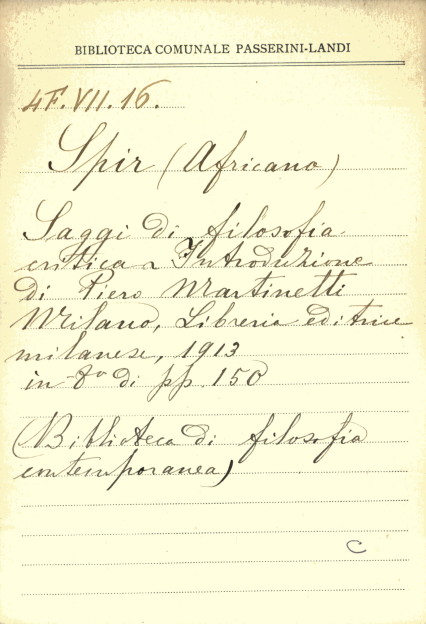 BIBLIOTECA COMUNALE PASSERINI-LANDI
4F.VII.16.
Spir (Africano)
Saggi di filosofia
critica Introduzione
di Piero Martinetti
Milano, Libreria editrice
milanese, 1913
in-8° di pp. 150
(Biblioteca di filosofia
contemporanea)
C